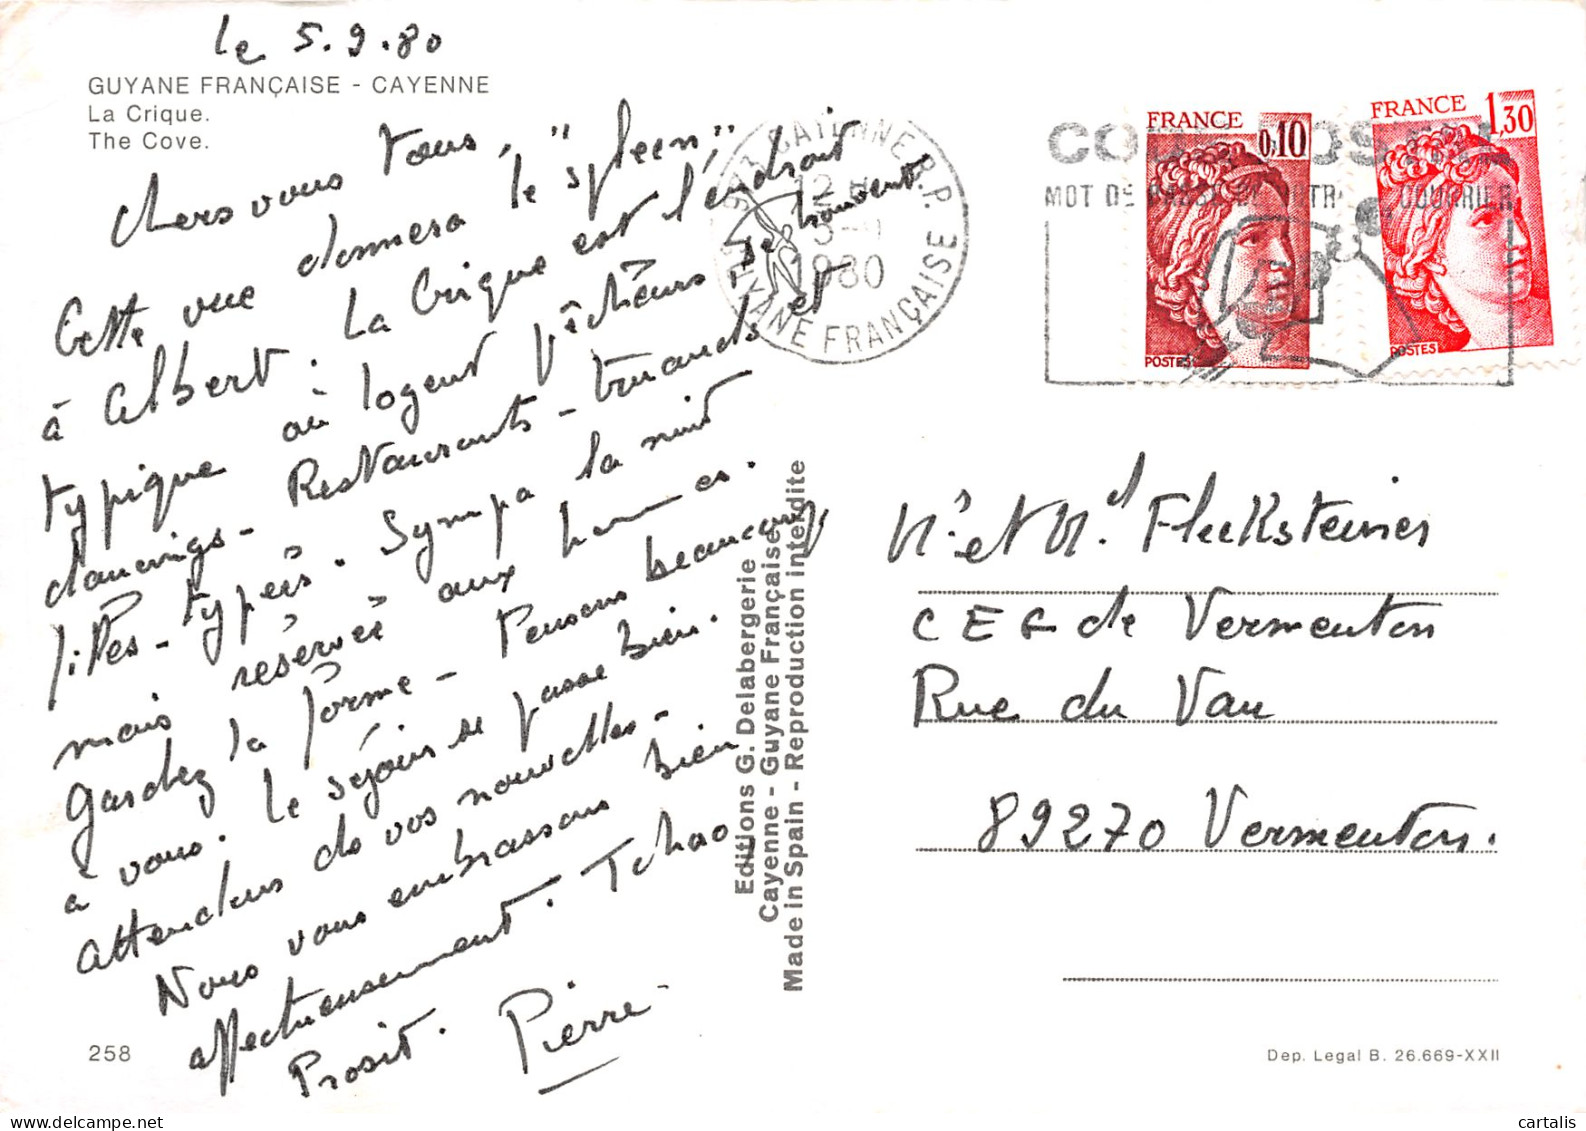 le 5.9.80
GUYANE FRANÇAISE - CAYENNE
La Crique.
The Cove.
Chers vous tous,
Cette vue donnera le "spleen"
à Albert. La Crique est l'endroit
typique où logent pêcheurs, se trouvent
dancings - Restaurants - truands et
filles - typées. Sympa la nuit
mais réservée aux hommes.
Gardez la forme - Pensons beaucoup
à vous. Le séjour se passe bien.
Attendons de vos nouvelles -
Nous vous embrassons bien
affectueusement. Tchao
Prosit. Pierre
258
Editions G. Delabergerie
Cayenne - Guyane Française
Made in Spain - Reproduction interdite
973 CAYENNE R.P.
12 H
5-9
1980
GUYANE FRANÇAISE
MOT DE PASSE DE VOTRE COURRIER
FRANCE
0,10
POSTES
FRANCE
1,30
POSTES
Mr et Me Flecksteiner
CEG de Vermenton
Rue du Vau
89270 Vermenton.
Dep. Legal B. 26.669-XXII
cartalis